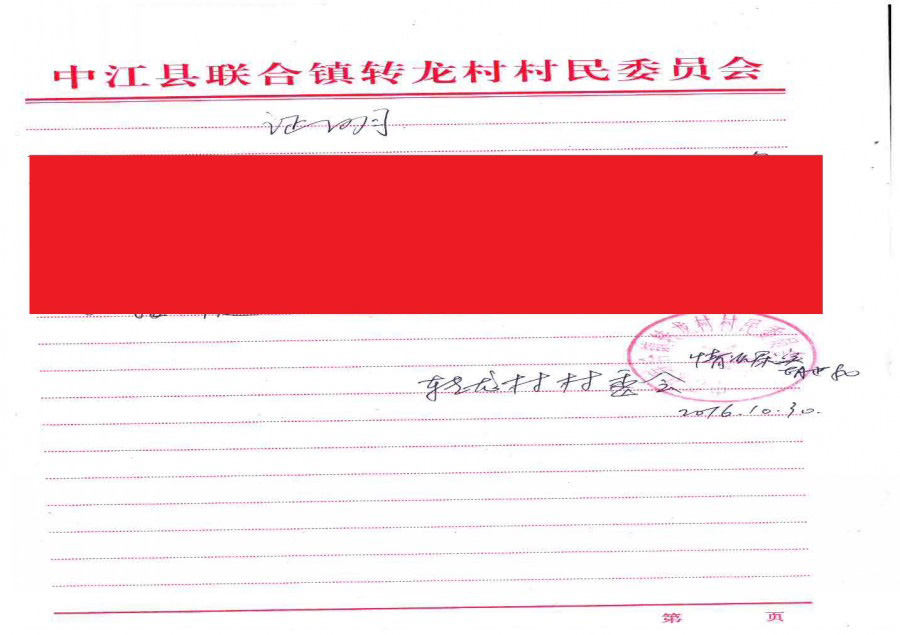 中江县联合镇转龙村村民委员会
证明
情况属实
转龙村村委会
2016.10.30.
第 页